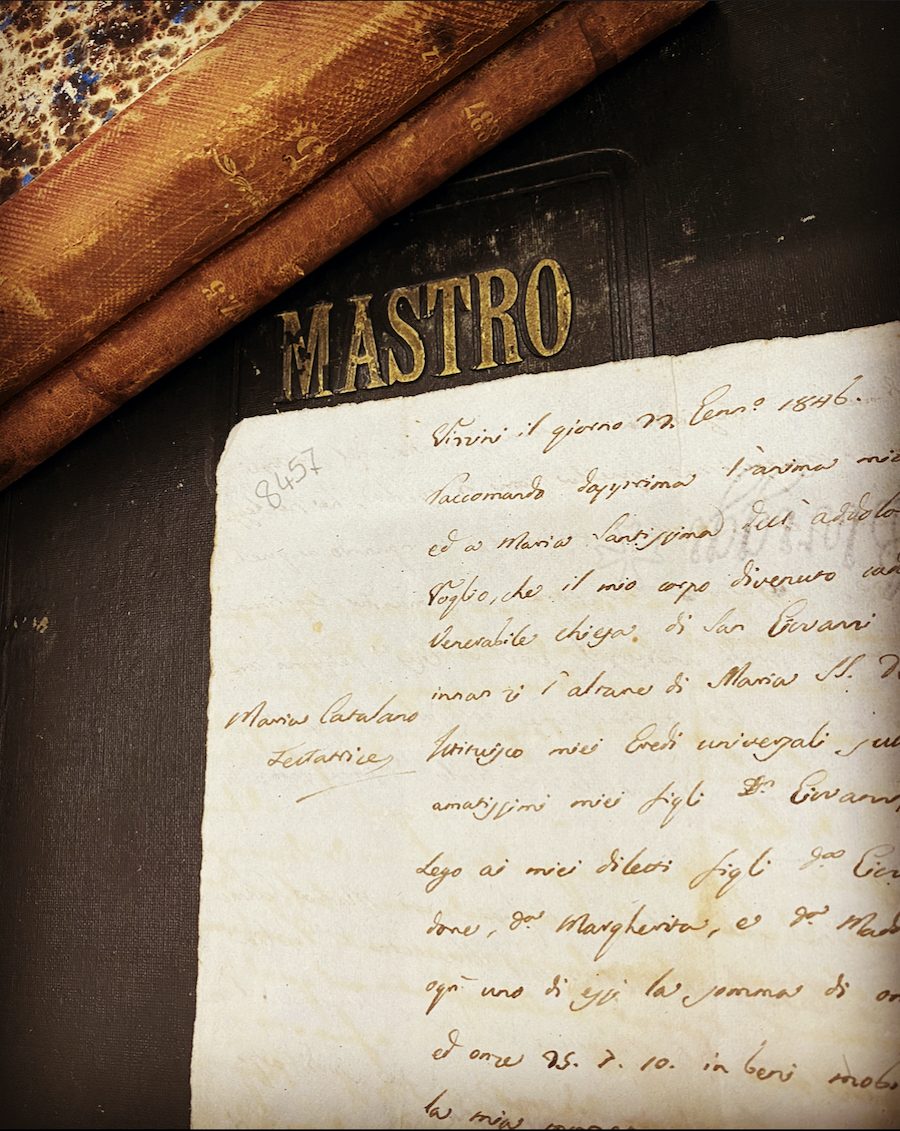 MASTRO
8457
Vizzini il giorno 22. Genn.º 1846.
Raccomando dapprima l'anima mia
ed a Maria Santissima dell' addolo
Voglio, che il mio corpo divenuto cad
Venerabile chiesa di San Giovanni
innanzi l'altare di Maria SS. D
Maria Catalano
Testatrice
Istituisco miei Eredi universali
amatissimi miei figli Dn. Giovann
Lego ai miei diletti figli
done, Dª Margherita, e Dª Mad
ogn' uno di essi la somma di on
ed onze 25. 7. 10. in beni mobi
la mia